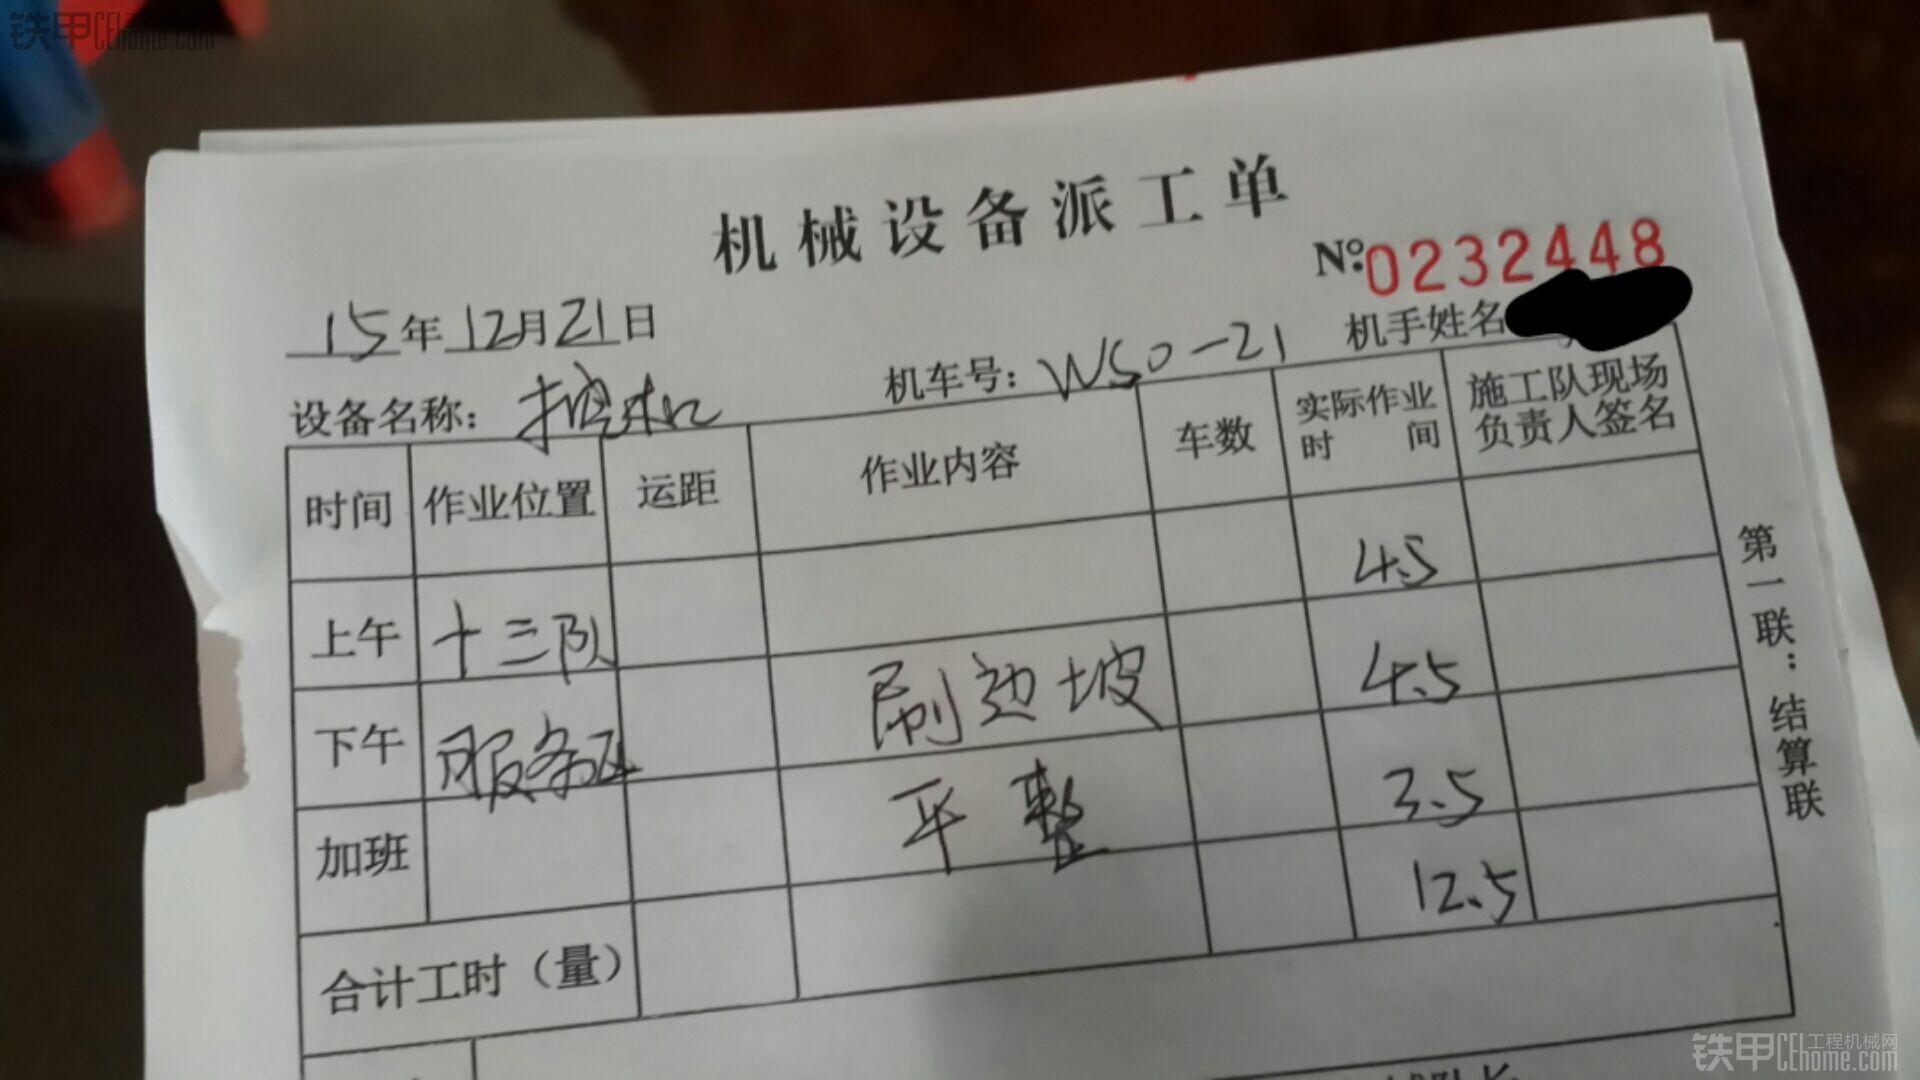 铁甲CEhome.com
机械设备派工单
№:0232448
15年12月21日
设备名称：挖机 机车号：WSO-21 机手姓名
时间 作业位置 运距 作业内容 车数 实际作业时间 施工队现场负责人签名
上午 十三队 4.5
下午 服务区 刷边坡 4.5
加班 平整 3.5
合计工时（量） 12.5
第一联：结算联
铁甲工程机械网
CEhome.com